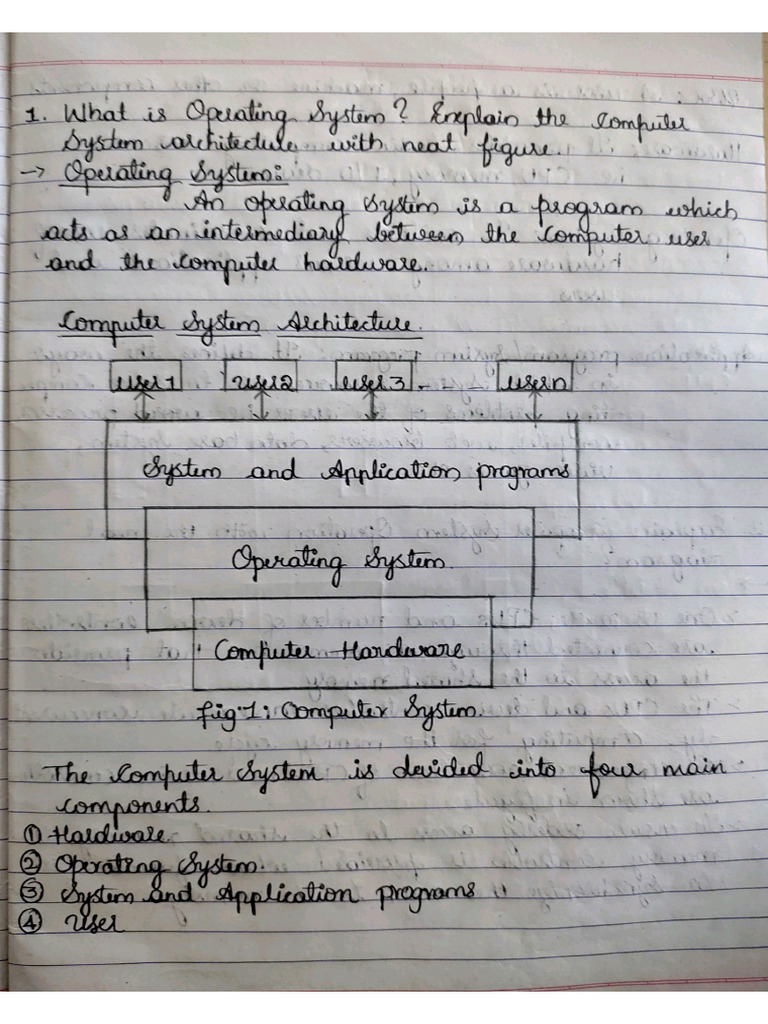 1. What is Operating System? Explain the Computer
System architecture with neat figure.
→ Operating System:
An operating system is a program which
acts as an intermediary between the computer user
and the computer hardware.
Computer System Architecture.
user1 user2 user3 - - usern
System and Application programs
Operating System
Computer Hardware
fig.1: Computer System.
The Computer System is devided into four main
components.
① Hardware
② Operating System.
③ System and Application programs
④ User